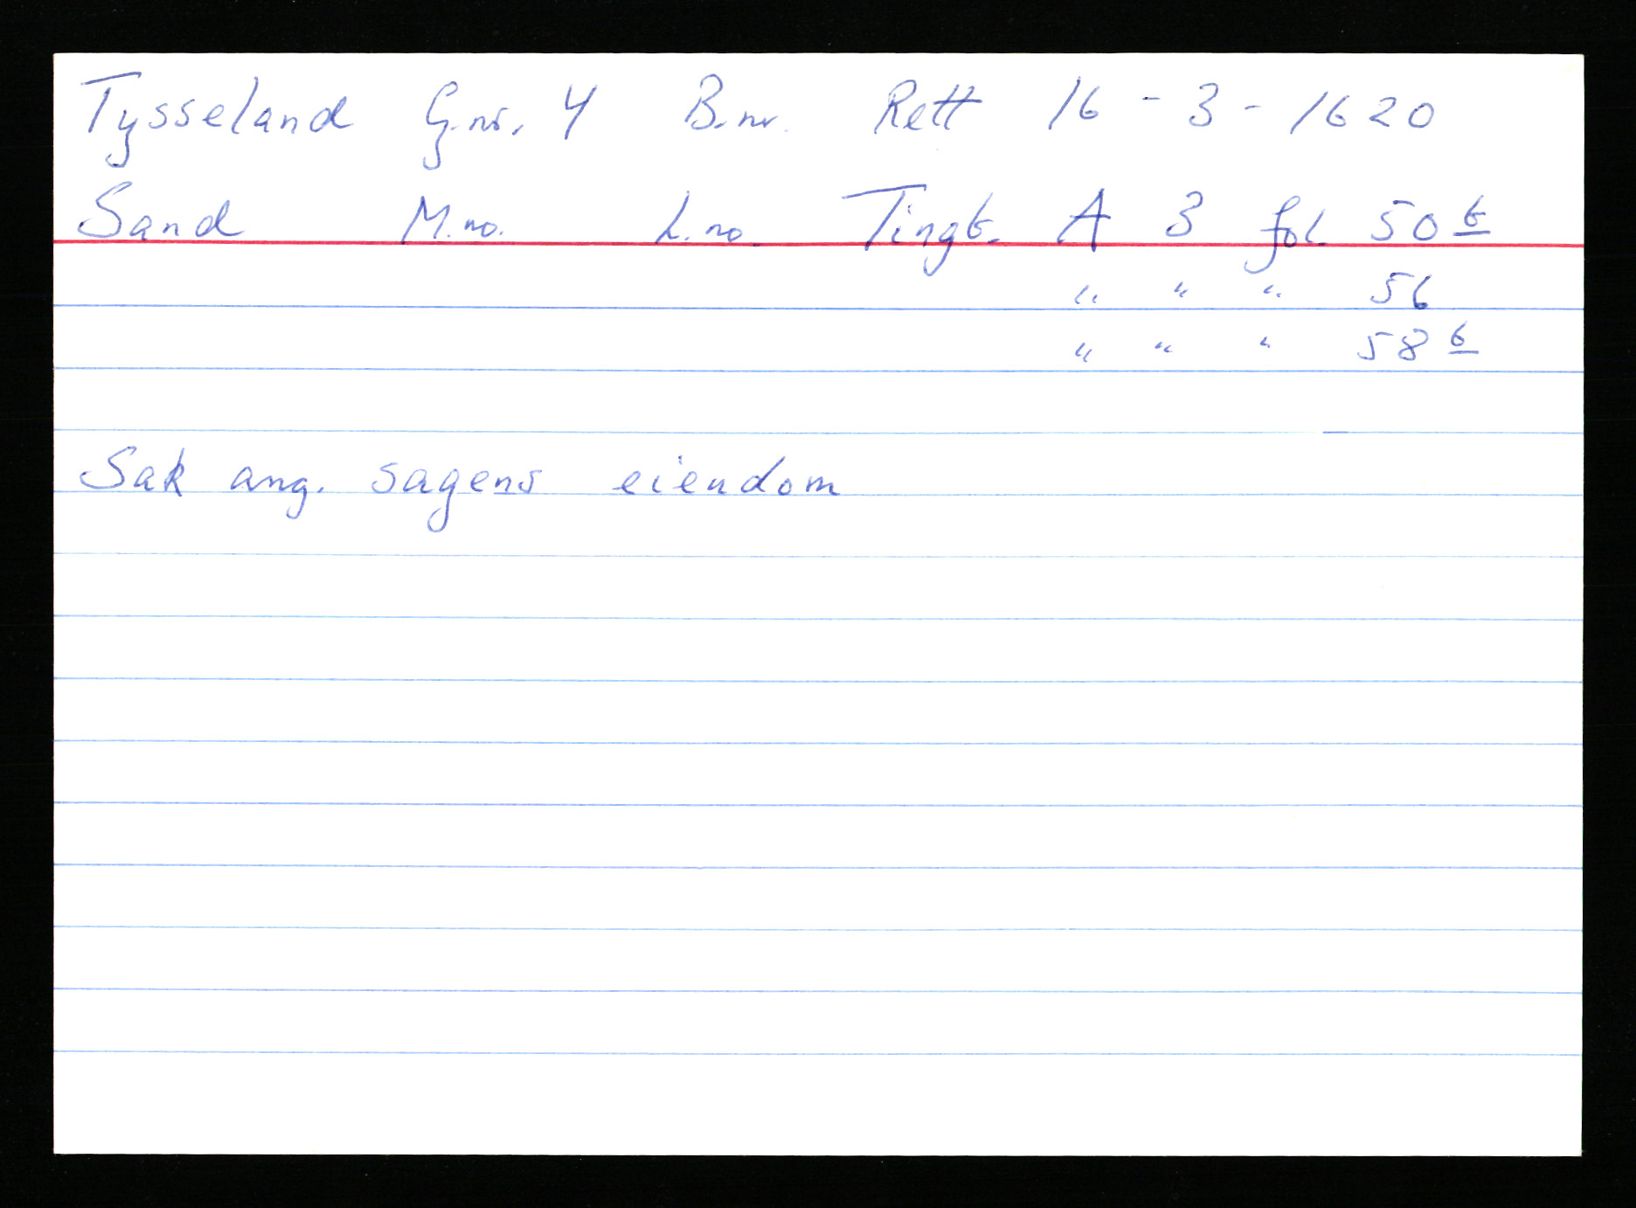 Tysseland G.nr. 4 B.nr. Rett 16 - 3 - 1620
Sand M.no. L.no. Tingb. A 3 fol 50 b
" " " 56
" " " 58 b
Sak ang. sagens eiendom